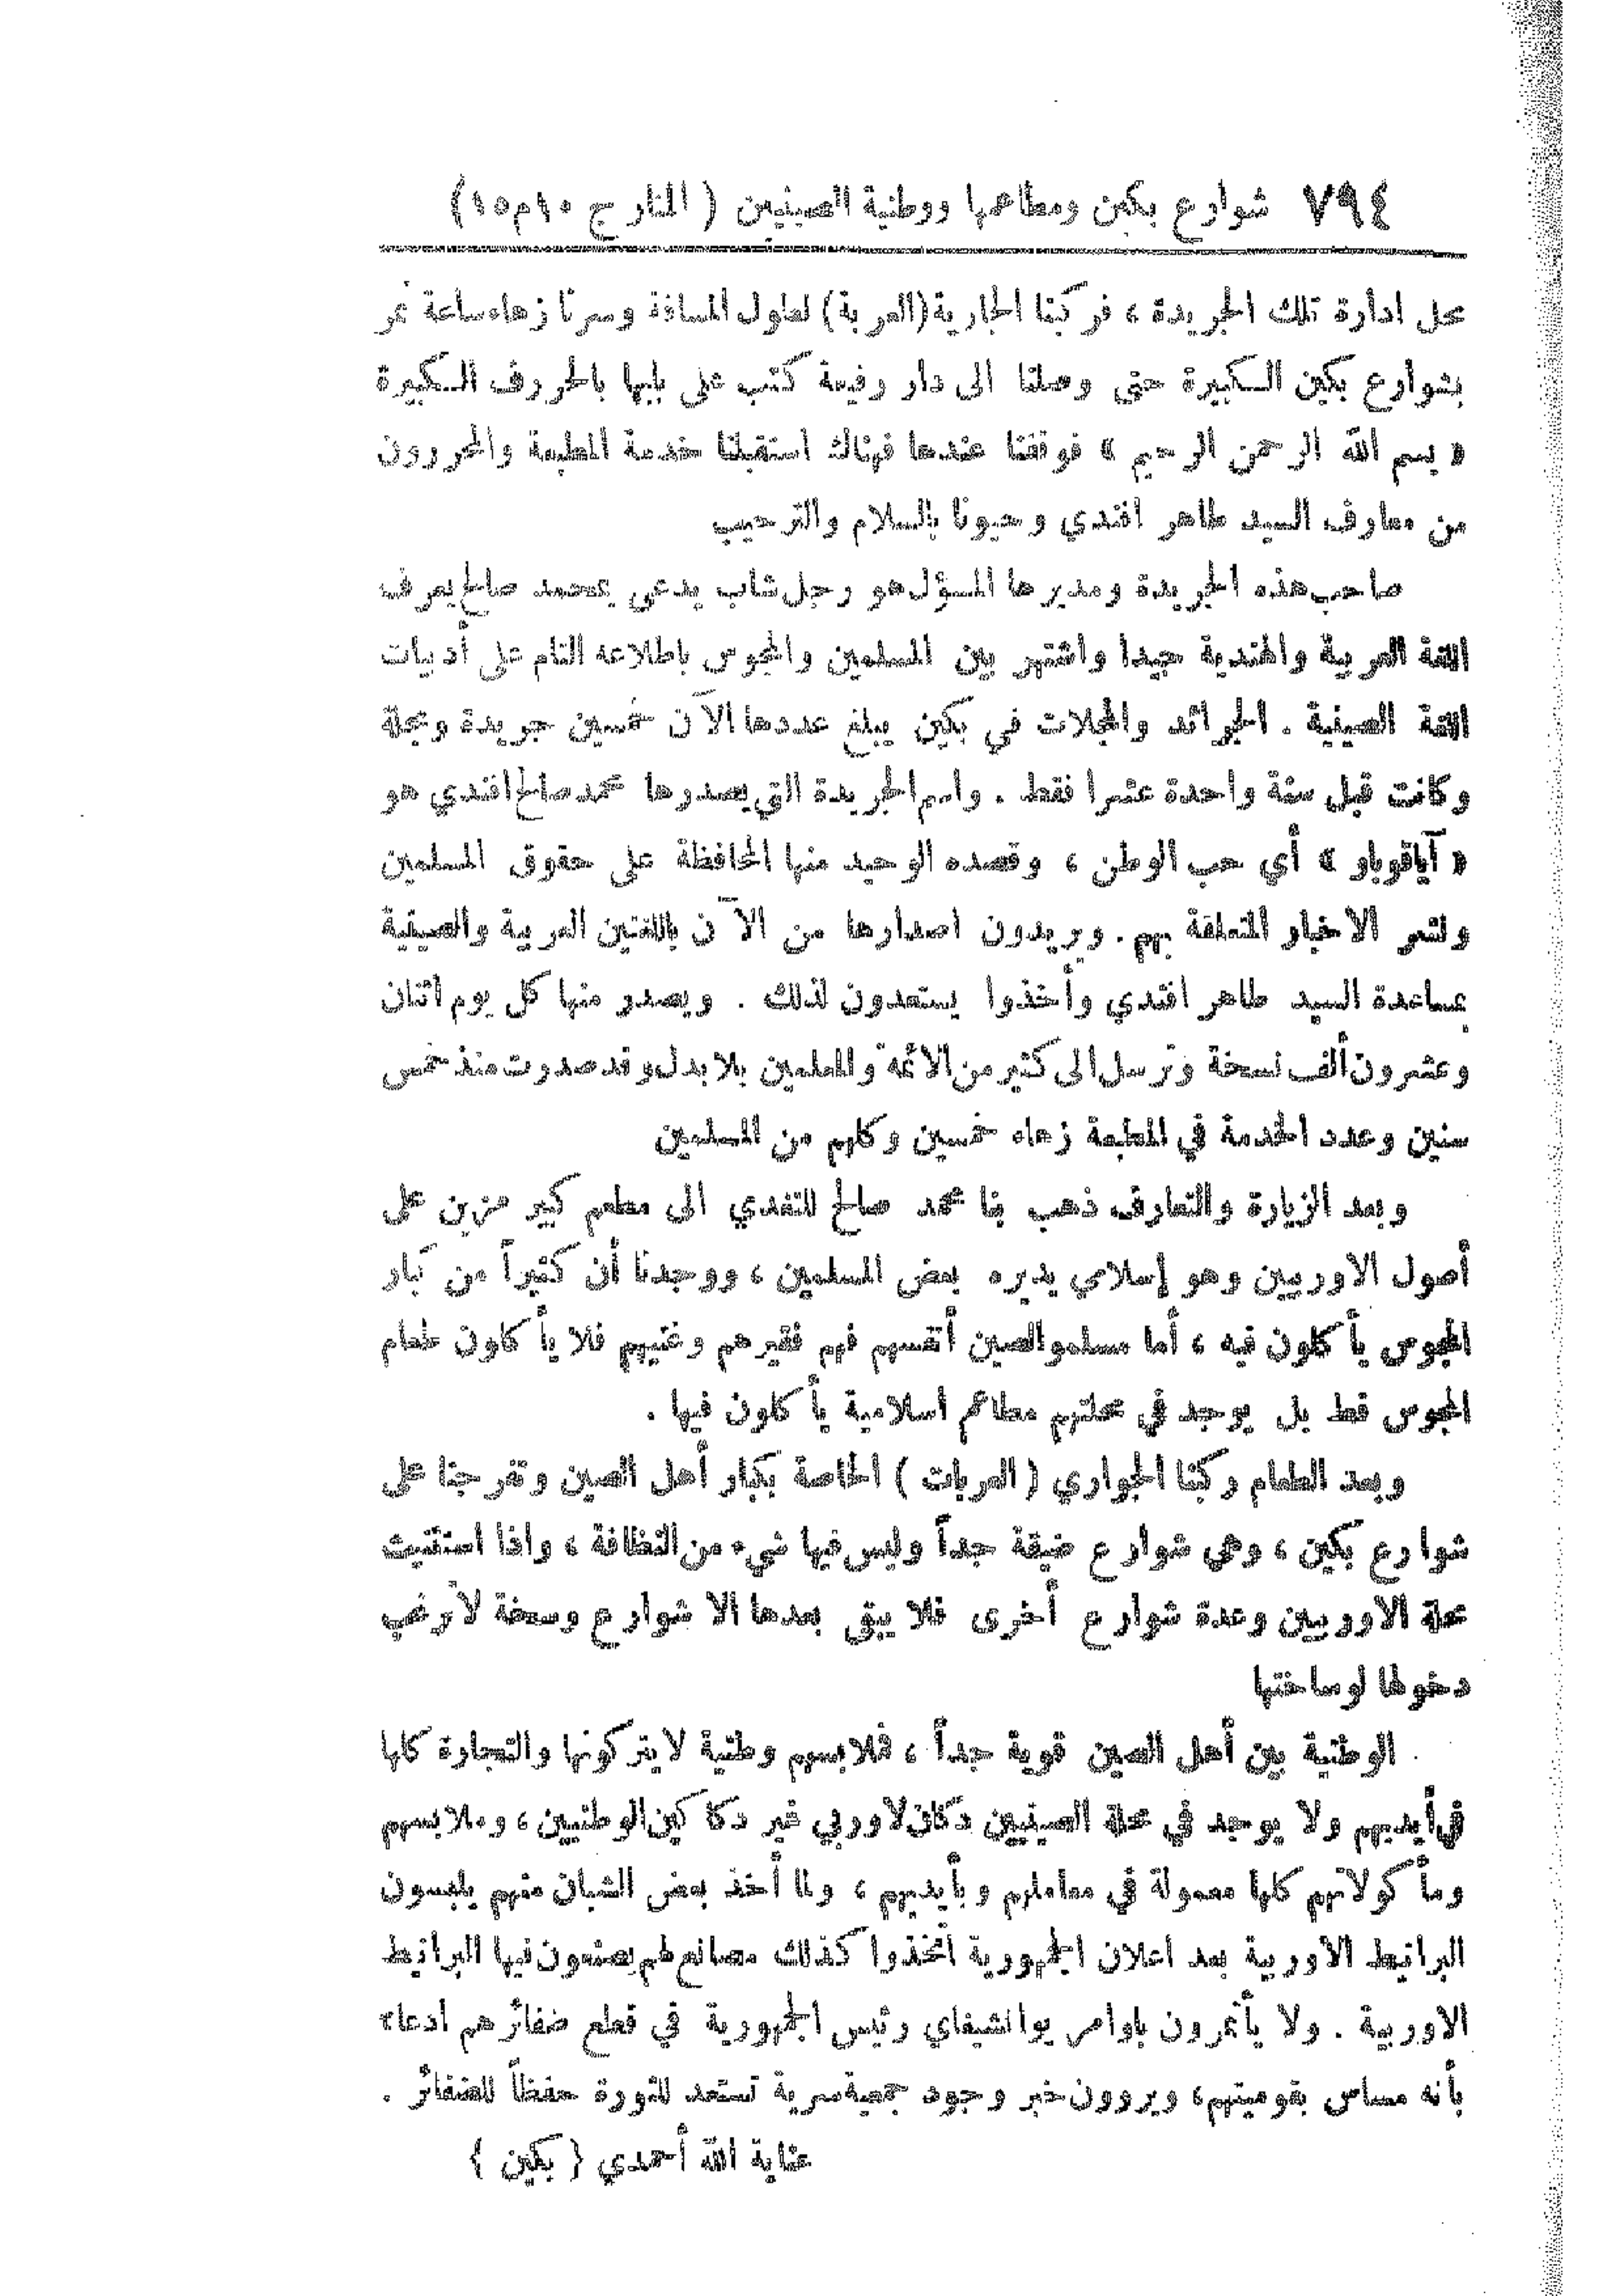 ٧٩٤ شوارع بكين ومطاعمها ووطنية الصينيين ( المنارج ١٠م١٥)
محل ادارة تلك الجريدة ، فركبنا الجارية (العربة) لطول المسافة وسرنا زهاء ساعة نمر
بشوارع بكين الكبيرة حتى وصلنا الى دار رفيعة كتب على بابها بالحروف الكبيرة
« بسم الله الرحمن الرحيم » فوقفنا عندها فهناك استقبلنا خدمة المطبعة والمحررون
من معارف السيد طاهر افندي وحيونا بالسلام والترحيب
صاحب هذه الجريدة ومديرها المسؤل هو رجل شاب يدعى بمحمد صالح يعرف
اللغة العربية والهندية جيدا واشتهر بين المسلمين والمجوس باطلاعه التام على أدبيات
اللغة الصينية . الجرائد والمجلات في بكين يبلغ عددها الآن خمسين جريدة ومجلة
وكانت قبل سنة واحدة عشرا فقط . واسم الجريدة التي يصدرها محمد صالح افندي هو
« آياقوباو » أي حب الوطن ، وقصده الوحيد منها المحافظة على حقوق المسلمين
ونشر الاخبار المتعلقة بهم . ويريدون اصدارها من الآن باللغتين العربية والصينية
بمساعدة السيد طاهر افندي وأخذوا يستعدون لذلك . ويصدر منها كل يوم اثنان
وعشرون ألف نسخة وترسل الى كثير من الائمة والمعلمين بلا بدل وقد صدرت منذ خمس
سنين وعدد الخدمة في المطبعة زهاء خمسين وكلهم من المسلمين
وبعد الزيارة والتعارف ذهب بنا محمد صالح للتغدي الى مطعم كبير مزين على
أصول الاوربيين وهو إسلامي يديره بعض المسلمين ، ووجدنا أن كثيراً من كبار
المجوس يأكلون فيه ، أما مسلمو الصين أنفسهم فهم فقيرهم وغنيهم فلا يأكلون طعام
المجوس قط بل يوجد في محلتهم مطاعم اسلامية يأكلون فيها .
وبعد الطعام ركبنا الجواري ( العربات ) الخاصة بكبار أهل الصين وتفرجنا على
شوارع بكين ، وهي شوارع ضيقة جداً وليس فيها شيء من النظافة ، واذا استثنيت
محلة الاوربيين وعدة شوارع أخرى فلا يبقى بعدها الا شوارع وسخة لا ترغب
دخولها لوساختها
الوطنية بين أهل الصين قوية جداً ، فملابسهم وطنية لا يتركونها والتجارة كلها
في أيديهم ولا يوجد في محلة الصينيين دكان لاوربي غير دكاكين الوطنيين ، وملابسهم
ومأكولاتهم كلها معمولة في معاملهم وبأيديهم ، ولما أخذ بعض الشبان منهم يلبسون
البرانيط الاوربية بعد اعلان الجمهورية أتخذوا كذلك مصانع لهم يصنعون فيها البرانيط
الاوربية . ولا يأتمرون باوامر يوانشيفاي رئيس الجمهورية في قطع ضفائرهم ادعاء
بأنه مساس بقوميتهم، ويروون خبر وجود جمعية سرية تستعد للثورة حفظاً للضفائر .
عناية الله أحمدي { بكين }